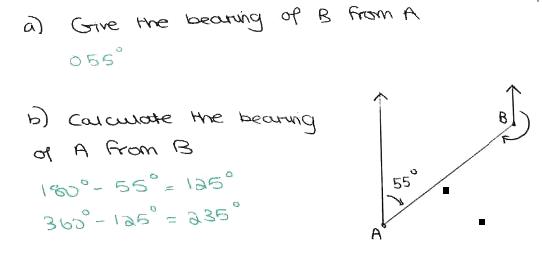 a) Give the bearing of B from A
055°
b) Calculate the bearing
of A from B
180° - 55° = 125°
360° - 125° = 235°
B
55°
A